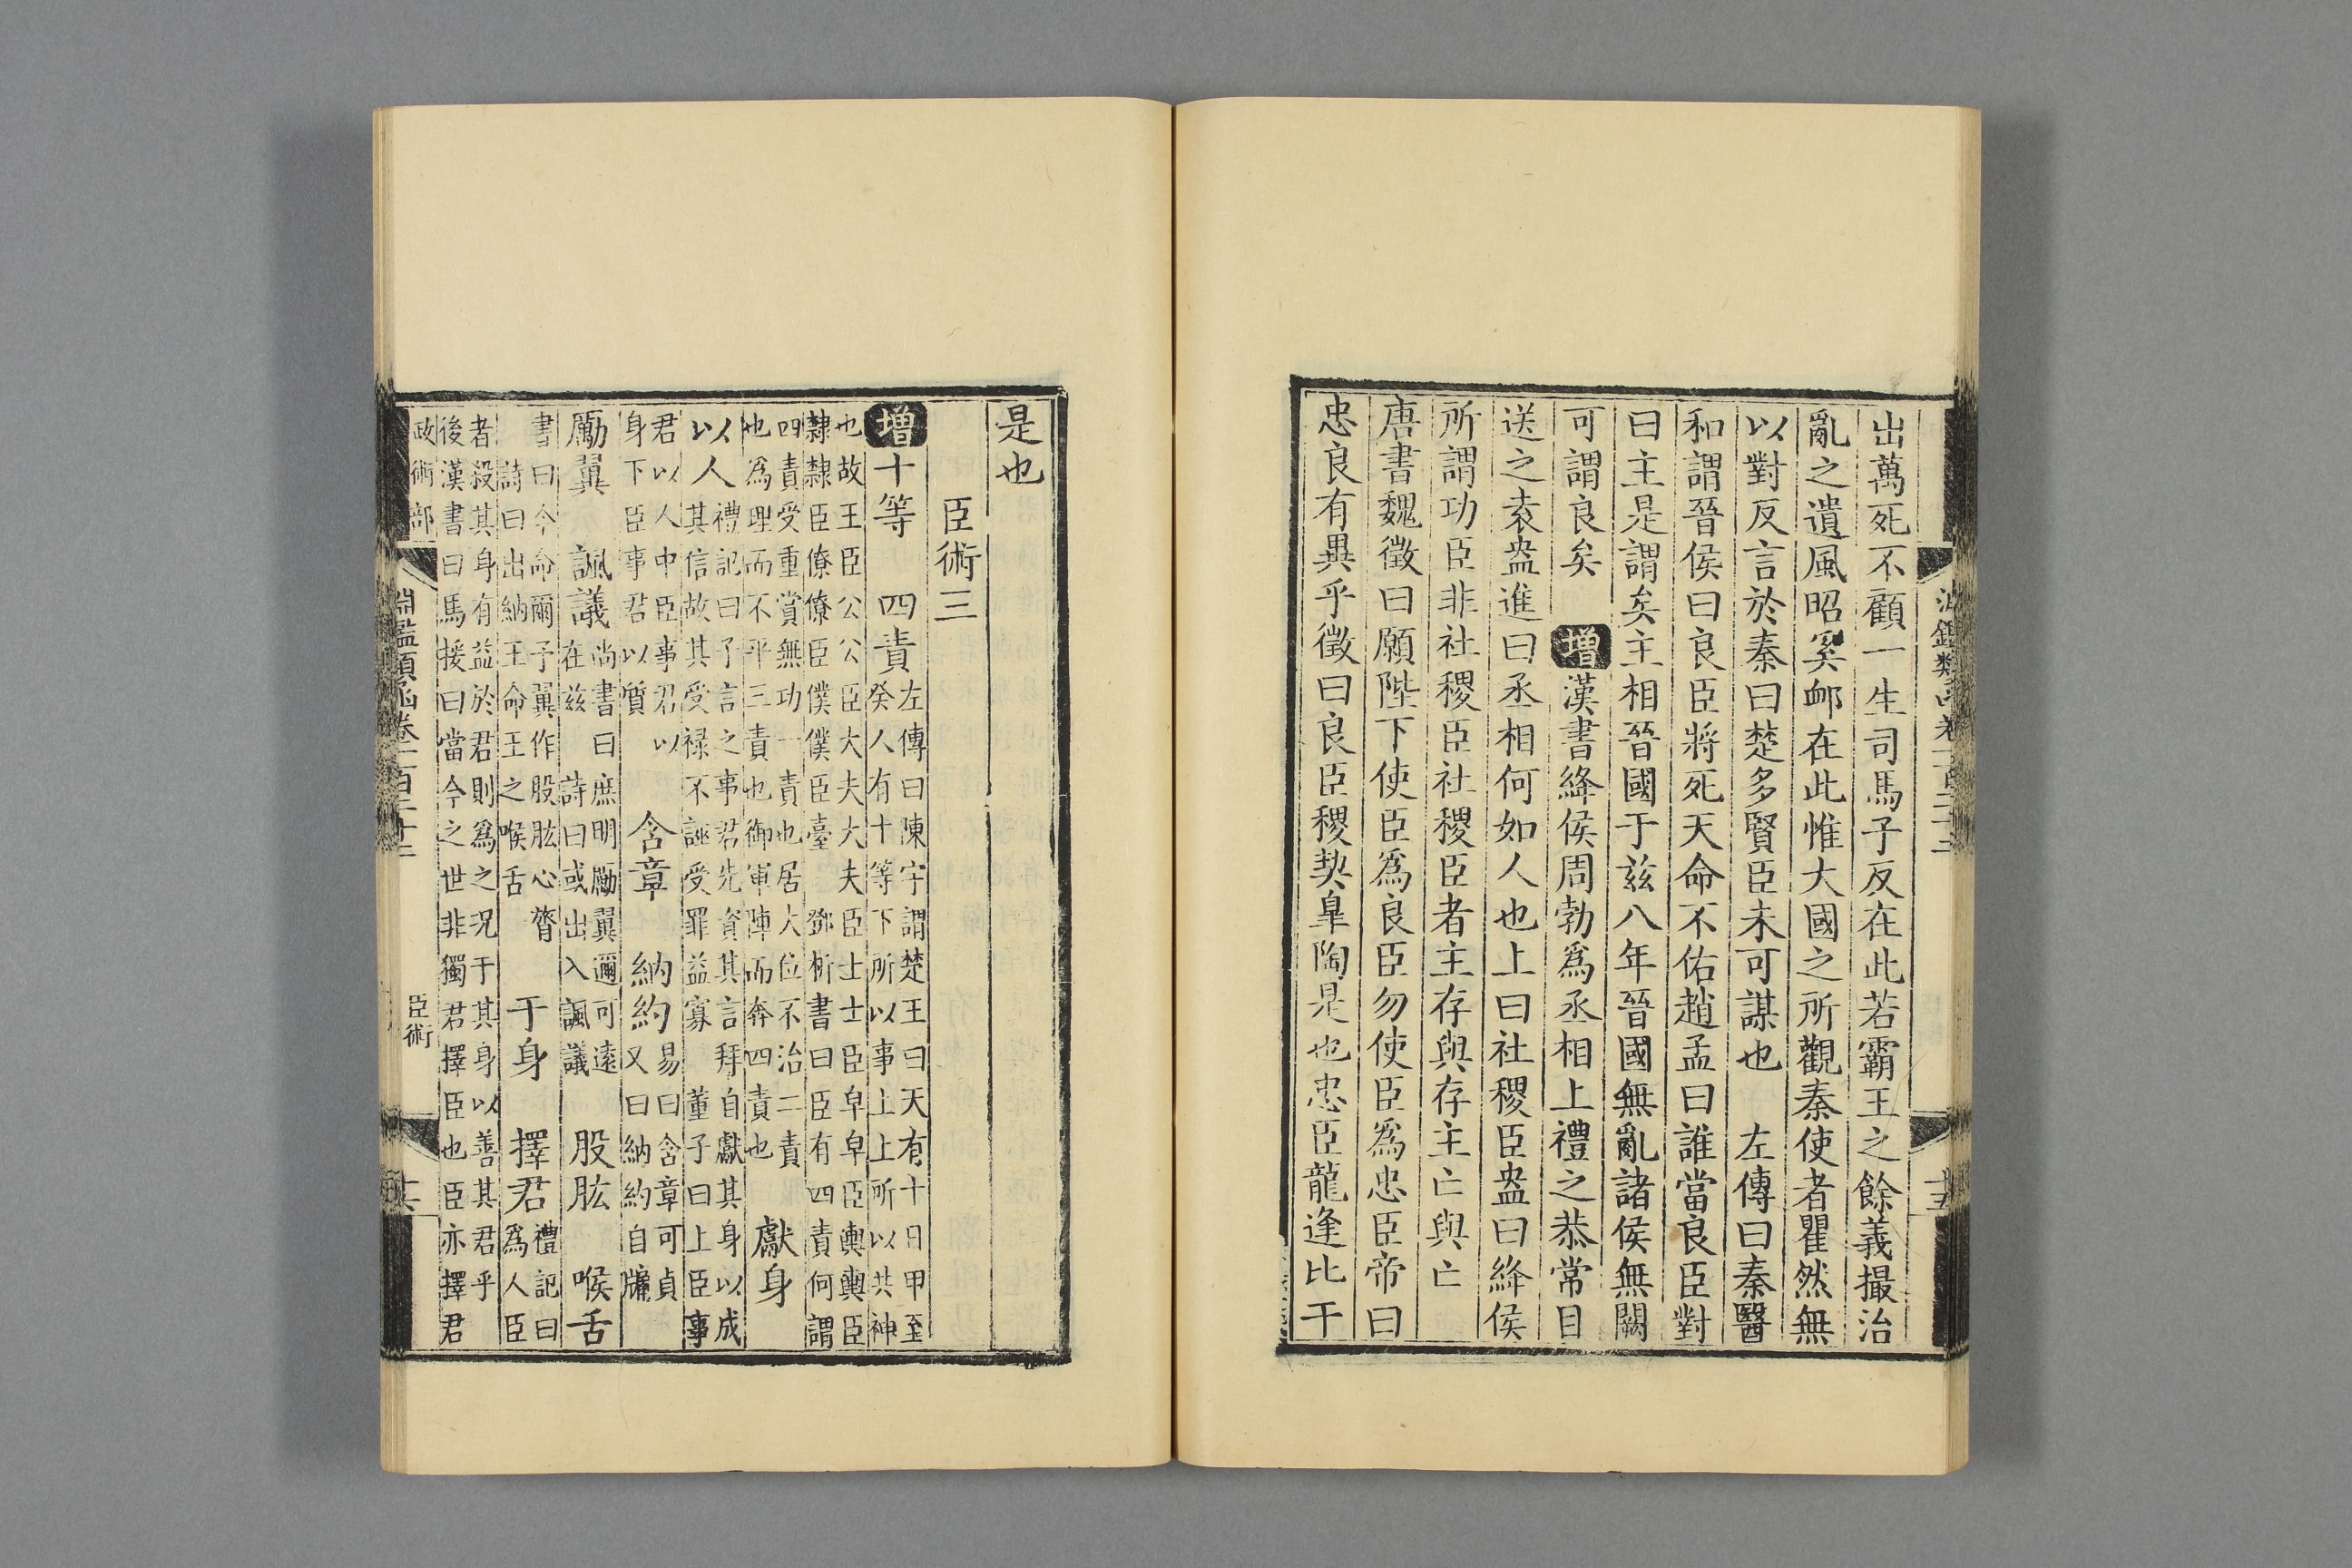 出萬死不顧一生司馬子反在此若霸王之餘義撮治
亂之遺風昭奚䘏在此惟大國之所觀秦使者瞿然無
以對反言於秦曰楚多賢臣未可謀也 左傳曰秦醫
和謂晉侯曰良臣將死天命不佑趙孟曰誰當良臣對
曰主是謂矣主相晉國于兹八年晉國無亂諸侯無闕
可謂良矣 增 漢書絳侯周勃為丞相上禮之恭常目
送之袁盎進曰丞相何如人也上曰社稷臣盎曰絳侯
所謂功臣非社稷臣社稷臣者主存與存主亡與亡
唐書魏徵曰願陛下使臣為良臣勿使臣為忠臣帝曰
忠良有異乎徵曰良臣稷契臯陶是也忠臣龍逢比干
是也
臣術三
增 十等 四責 左傳曰陳宇謂楚王曰天有十日甲至
癸人有十等下所以事上上所以共神
也故王臣公公臣大夫大夫臣士士臣皁皁臣輿輿臣
隸隸臣僚僚臣僕僕臣臺 鄧析書曰臣有四責何謂
四責受重賞無功一責也居大位不治二責
也為理而不平三責也御軍陣而奔四責也 獻身
以人 禮記曰子言之事君先資其言拜自獻其身以成
其信故其受祿不誣受罪益寡 董子曰上臣事
君以人中臣事君以
身下臣事君以質 含章 納約 易曰含章可貞
又曰納約自牖
勵翼 諷議 尚書曰庶明勵翼邇可遠
在兹 詩曰或出入諷議 股肱 喉舌
書曰今命爾予翼作股肱心膂
詩曰出納王命王之喉舌 于身 擇君 禮記曰
為人臣
者殺其身有益於君則為之況于其身以善其君乎
後漢書曰馬援曰當今之世非獨君擇臣也臣亦擇君
政術部 淵鑑類函卷一百二十三 臣術